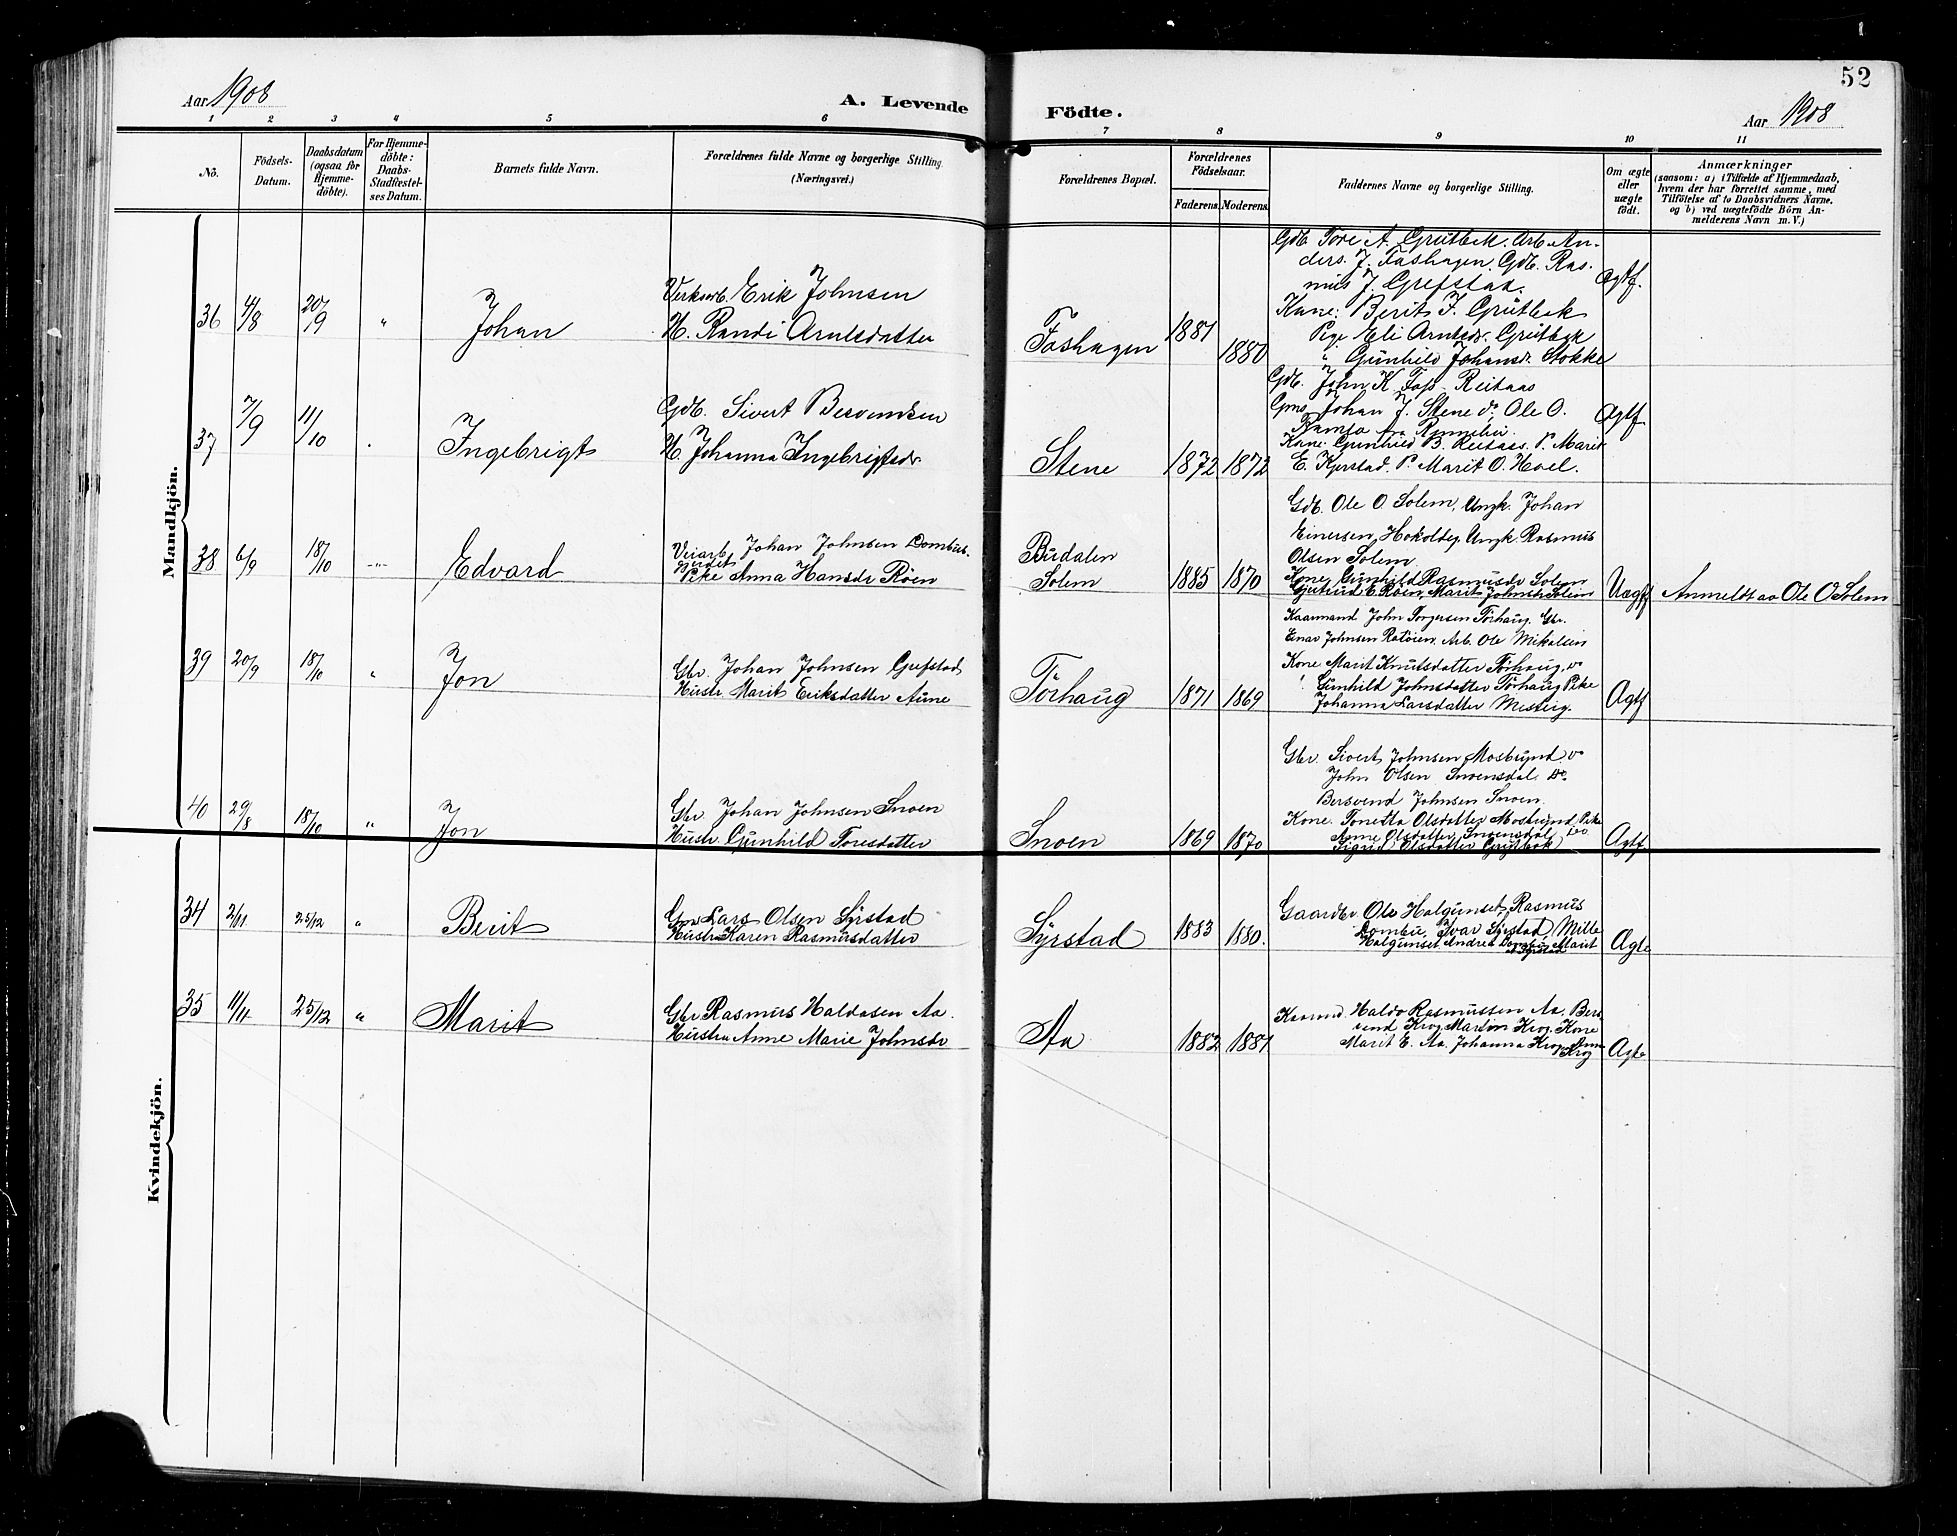 52
Aar 1908
A. Levende
Födte.
Aar 1908
1 2 3 4 5 6 7 8 9 10 11
No.
Födsels-
Datum.
Daabsdatum
(ogsaa for
Hjemme-
döbte).
For Hjemme-
döbte:
Daabs-
Stadfæstel-
ses Datum.
Barnets fulde Navn.
Forældrenes fulde Navne og borgerlige Stilling.
(Næringsvei.)
Forældrenes Bopæl.
Forældrenes
Födselsaar.
Faderens.
Moderens.
Faddernes Navne og borgerlige Stilling.
Om ægte
eller
uægte
födt.
Anmærkninger
(saasom: a) i Tilfælde af Hjemmedaab,
hvem der har forrettet samme, med
Tilföielse af to Daabsvidners Navne.
og b) ved uægtefödte Börn An-
melderens Navn m. V.)
Mandkjön.
36 4/8 20/9 " Johan
Verksarb. Erik Johnsen
H. Randi Arntsdatter
Foshagen 1881 1880
Gdb. Tore A. Grutbek. Arb. An-
ders J. Foshagen. Gdb. Ras-
mus J. Grefstaa.
Kone: Berit J. Grutbek
Pige Eli Arntsdr. Grutbek
" Gunhild Johansdr. Stokke
Ægtf.
37 7/9 11/10 Ingebrigt
Gdb. Sivert Bersvendsen
H. Johanna Ingebrigtsdr.
Stene 1872 1872
Gdb. John K. Foss. Reitaas
Gms. Johan J. Stene do. Ole O.
Ramsa fra Rennebu.
Kone: Gunhild B. Reitaas. P. Marit
E. Kjerstad. P. Marit O. Hoel.
Ægtf
38 6/9 18/10 -"- Edvard
Veiarb. Johan Johnsen Dombus-
gjerdet
Pike Anna Hansdr Röen
Budalen
Solem 1885 1870
Gdb. Ole O. Solem, Ungk. Johan
Einersen Ungk Rasmus
Olsen Solem
Kone Gunhild Rasmusdr Solem
Gjertrud E. Röen, Marit Johnsdr Solem
Uægtf Anmeldt av Ole O Solem
39 20/9 18/10 " Jon
Gbr. Johan Johnsen Grefstad
Hustr. Marit Eriksdatter Aune
Törhaug 1871 1869
Kaarmand John Torgersen Törhaug. Gbr.
Einar Johnsen Ratöien. Arb. Ole Mikalsen
Kone Marit Knutsdatter Törhaug, do
" Gunhild Johnsdatter Törhaug Pike
Johanna Larsdatter
Ægtf
40 29/8 18/10 " Jon
Gbr. Johan Johnsen Snoen
Hustr. Gunhild Toresdatter
Snoen 1869 1870
Gbr. Sivert Johnsen Mostrund do
John Olsen Snoensdal Do.
Bersvend Johnsen Snoen.
Kone. Tonetta Olsdatter Mostrund Pike
Anne Olsdatter Snoensdal Do
Sigrid Olsdatter Grytbak
Ægtf.
Kvindekjön.
34 2/11 25/12 " Berit
Gms Lars Olsen Syrstad
Hustr. Karen Rasmusdatter
Syrstad 1883 1880.
Gaardbr. Ole Halgunset, Rasmus
Dombu, Ivar Syrstad, Mille
Halgunset Andrea Dombu, Marit
Syrstad
Ægte
35 11/11 25/12 " Marit
Gbr Rasmus Haldosen Aa.
Hustru Anne Marie Johnsdr
Aa 1882 1881
Kaarmd. Haldo Rasmussen Aa. Bers-
vend Krog Martin Krog. Kone
Marit E. Aa. Johanna Krog, Ane
Krog
Ægte